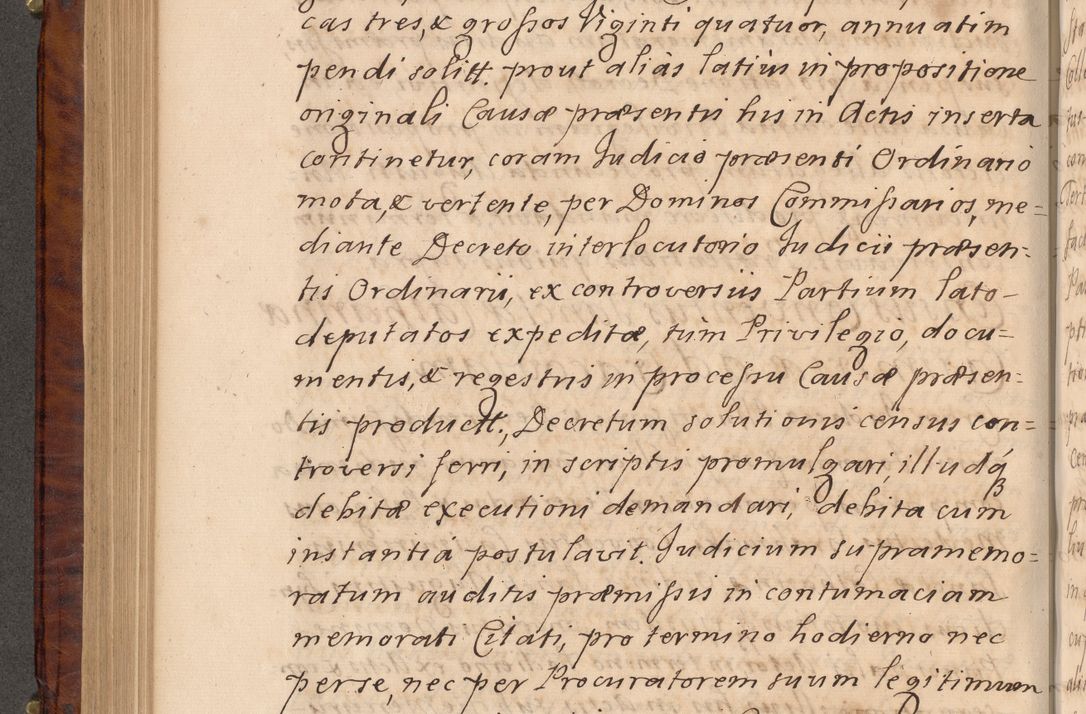 cas tres, & grossos Viginti quatuor, annuatim
pendi solitt. prout alias latius in propositione
originali Causæ præsentis his in Actis inserta
continetur, coram Judicio præsenti Ordinario
mota, & vertente, per Dominos Commissarios, me=
diante Decreto interlocutorio Judicii præsen=
tis Ordinarii, ex controversiis Partium lato-
deputatos expeditæ, tùm Privilegio, docu=
mentis, & regestris in processu Causæ præsen=
tis productt., Decretum solutionis census con=
troversi ferri, in scriptis promulgari, illudq́
debitæ executioni demandari, debita cum
instantiá postulavit. Judicium supramemo=
ratum auditis præmissis in contumaciam
memorati Citati, pro termino hodierno nec
per se, nec per Procuratorem suum legitimum